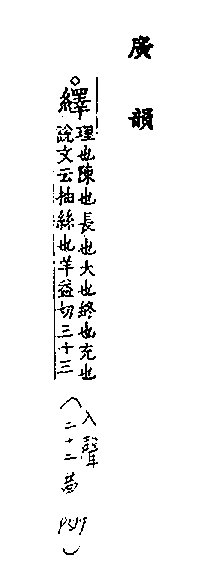 廣韻
○繹
理也陳也長也大也終也充也
說文云抽絲也羊益切三十三
(入聲
二十二昔
)